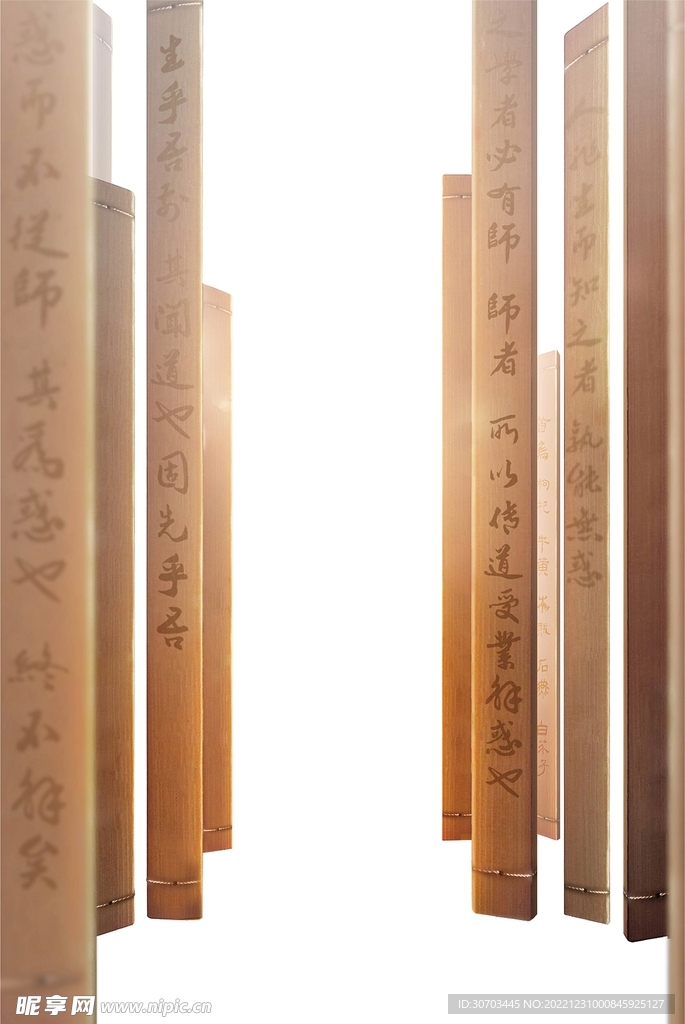 之學者必有師 師者 所以傳道受業解惑也
人非生而知之者 孰能無惑
惑而不從師 其為惑也 終不解矣
生乎吾前 其聞道也固先乎吾
石
白
子
昵享网 www.nipic.cn
ID:30703445 NO:20221231000845925127